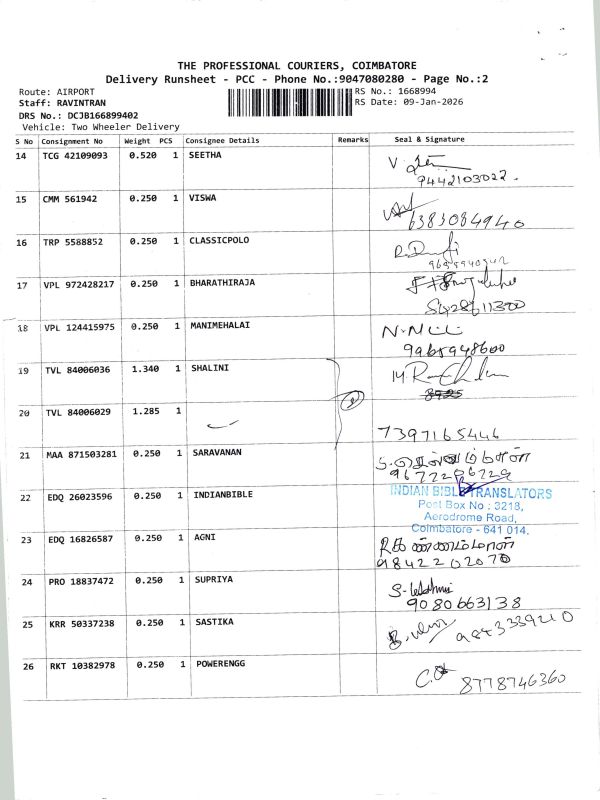 THE PROFESSIONAL COURIERS, COIMBATORE
Delivery Runsheet - PCC - Phone No.:9047080280 - Page No.:2
Route: AIRPORT
RS No.: 1668994
Staff: RAVINTRAN
RS Date: 09-Jan-2026
DRS No.: DCJB166899402
Vehicle: Two Wheeler Delivery
S No Consignment No Weight PCS Consignee Details Remarks Seal & Signature
14 TCG 42109093 0.520 1 SEETHA
9442103022.
15 CMM 561942 0.250 1 VISWA
6383084940
16 TRP 5588852 0.250 1 CLASSICPOLO
17 VPL 972428217 0.250 1 BHARATHIRAJA
18 VPL 124415975 0.250 1 MANIMEHALAI
9965948600
19 TVL 84006036 1.340 1 SHALINI
20 TVL 84006029 1.285 1
7397165446
21 MAA 871503281 0.250 1 SARAVANAN
22 EDQ 26023596 0.250 1 INDIANBIBLE
INDIAN BIBLE TRANSLATORS
Post Box No : 3218,
Aerodrome Road,
Coimbatore - 641 014.
23 EDQ 16826587 0.250 1 AGNI
9842202070
24 PRO 18837472 0.250 1 SUPRIYA
9080663138
25 KRR 50337238 0.250 1 SASTIKA
26 RKT 10382978 0.250 1 POWERENGG
8778746360